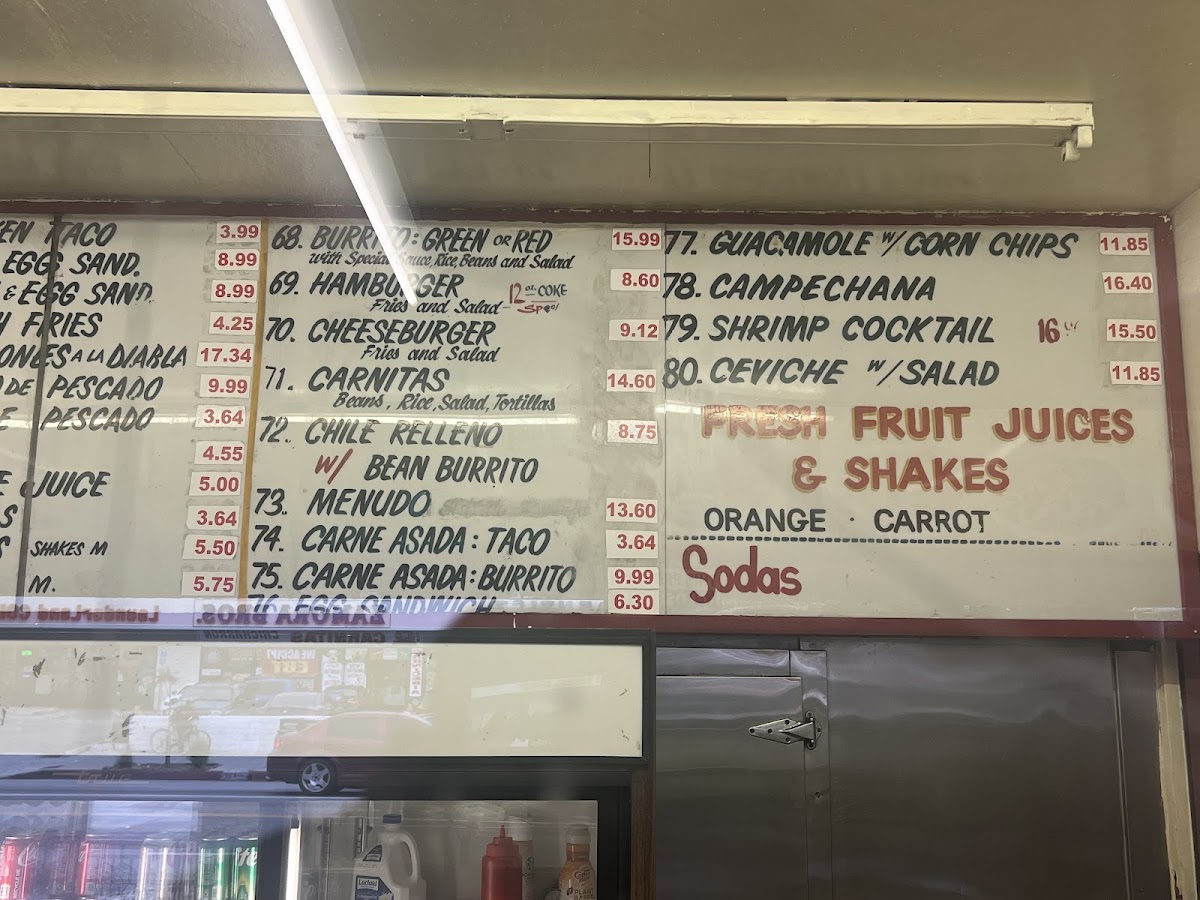 TACO 3.99
EGG SAND. 8.99
& EGG SAND 8.99
FRIES 4.25
A LA DIABLA 17.34
DE PESCADO 9.99
PESCADO 3.64
4.55
JUICE 5.00
3.64
SHAKES M 5.50
M. 5.75
68. BURRITO: GREEN OR RED 15.99
with Special Sauce, Rice, Beans and Salad
69. HAMBURGER 8.60
Fries and Salad 12 oz. COKE
70. CHEESEBURGER 9.12
Fries and Salad
71. CARNITAS 14.60
Beans, Rice, Salad, Tortillas
72. CHILE RELLENO 8.75
W/ BEAN BURRITO
73. MENUDO 13.60
74. CARNE ASADA: TACO 3.64
75. CARNE ASADA: BURRITO 9.99
76. EGG SANDWICH 6.30
77. GUACAMOLE W/ CORN CHIPS 11.85
78. CAMPECHANA 16.40
79. SHRIMP COCKTAIL 16 oz 15.50
80. CEVICHE W/ SALAD 11.85
FRESH FRUIT JUICES
& SHAKES
ORANGE · CARROT
Sodas
ZAMORA BROS.
CARNITAS